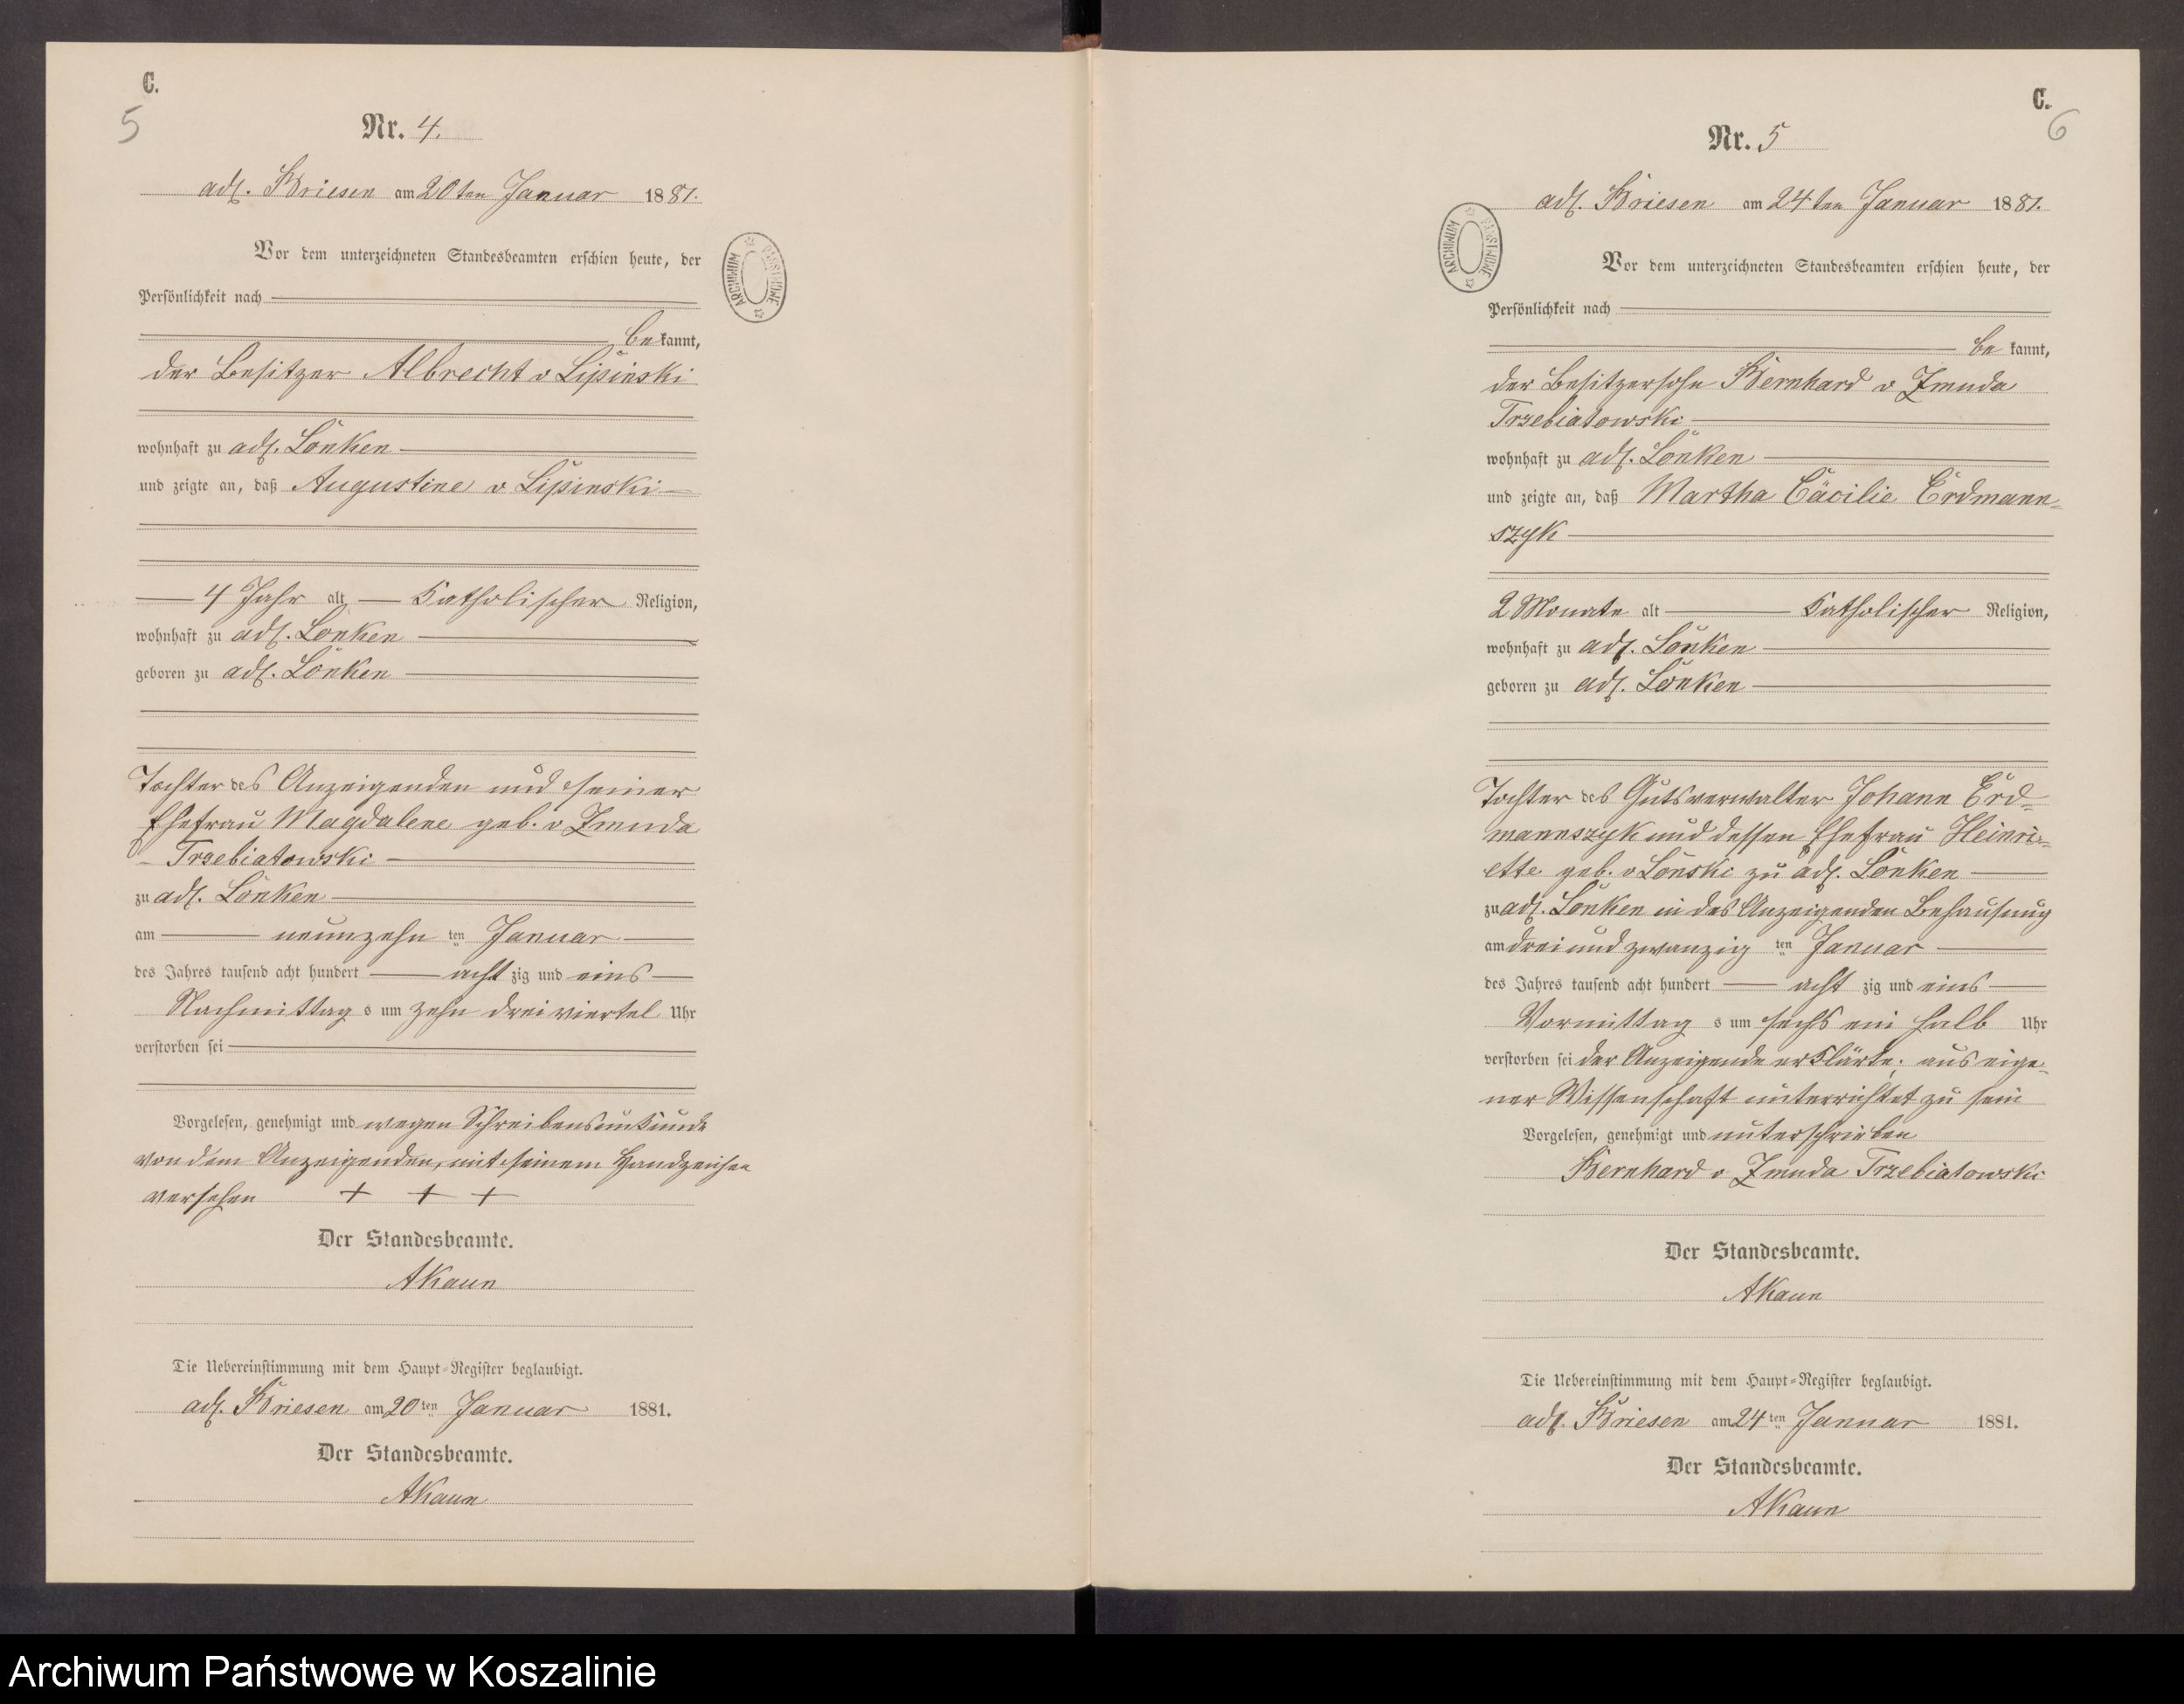 C.
5
Nr. 4.
adl. Briesen am 20ten Januar 1881.
Vor dem unterzeichneten Standesbeamten erschien heute, der
Persönlichkeit nach
bekannt,
der Besitzer Albrecht v Lipinski
wohnhaft zu adl. Lonken
und zeigte an, daß Augustine v Lipinski
4 Jahr alt Katholischer Religion,
wohnhaft zu adl. Lonken
geboren zu adl. Lonken
Tochter des Anzeigenden und seiner
Ehefrau Magdalene geb. v Zmuda
- Trzebiatowski
zu adl. Lonken
am neunzehn ten Januar
des Jahres tausend acht hundert acht zig und eins
Nachmittag s um zehn drei viertel Uhr
verstorben sei
Vorgelesen, genehmigt und wegen Schreibensunkunde
von dem Anzeigenden, mit seinem Handzeichen
versehen + + +
Der Standesbeamte.
AKaun
Die Uebereinstimmung mit dem Haupt-Register beglaubigt.
adl. Briesen am 20ten Januar 1881.
Der Standesbeamte.
AKaun
ARCHIWUM PAŃSTWOWE
C.
6
Nr. 5
adl. Briesen am 24ten Januar 1881.
Vor dem unterzeichneten Standesbeamten erschien heute, der
Persönlichkeit nach
be kannt,
der Besitzersohn Bernhard v Zmuda
Trzebiatowski
wohnhaft zu adl. Lonken
und zeigte an, daß Martha Cäcilie Erdmann-
szyk
2 Monate alt Katholischer Religion,
wohnhaft zu adl. Lonken
geboren zu adl. Lonken
Tochter des Gutsverwalter Johann Erd-
mannszyk und dessen Ehefrau Heinri-
ette geb. v Lonski zu adl. Lonken
zu adl. Lonken in des Anzeigenden Behausung
am drei und zwanzig ten Januar
des Jahres tausend acht hundert acht zig und eins
Vormittag s um sechs ein halb Uhr
verstorben sei der Anzeigende erklärte, aus eige-
ner Wissenschaft unterrichtet zu sein
Vorgelesen, genehmigt und unterschrieben
Bernhard v Zmuda Trzebiatowski
Der Standesbeamte.
AKaun
Die Uebereinstimmung mit dem Haupt-Register beglaubigt.
adl. Briesen am 24ten Januar 1881.
Der Standesbeamte.
AKaun
ARCHIWUM PAŃSTWOWE
Archiwum Państwowe w Koszalinie